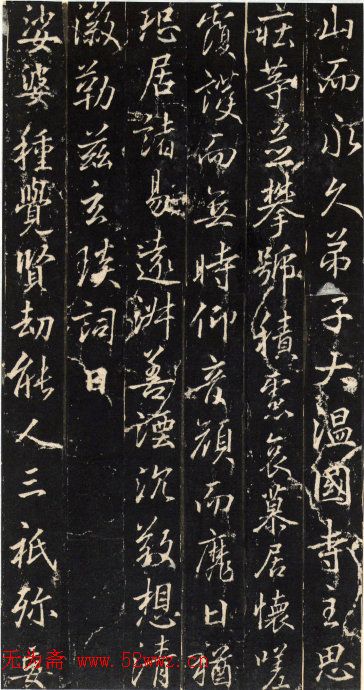 山而永久弟子大温國寺主思
莊等並攀號積慮哀慕居懷嗟
覆護而無時仰音顏而靡日猶
恐居諸易遠淑善湮沉敬想清
徽勒茲玄琰詞曰
娑婆種覺賢劫能人三祇弥妄
无为斋 www.52wwz.cn